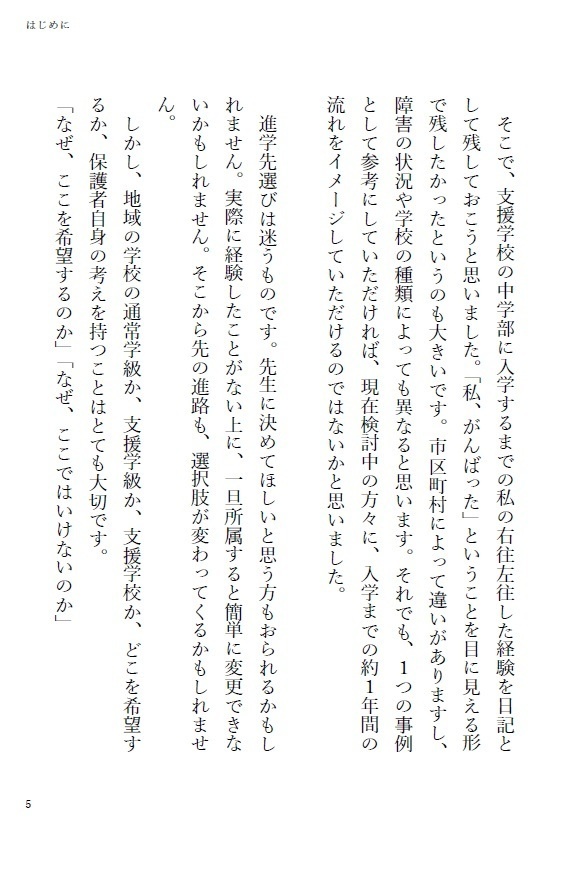 はじめに
そこで、支援学校の中学部に入学するまでの私の右往左往した経験を日記と
して残しておこうと思いました。「私、がんばった」ということを目に見える形
で残したかったというのも大きいです。市区町村によって違いがありますし、
障害の状況や学校の種類によっても異なると思います。それでも、１つの事例
として参考にしていただければ、現在検討中の方々に、入学までの約１年間の
流れをイメージしていただけるのではないかと思いました。
進学先選びは迷うものです。先生に決めてほしいと思う方もおられるかもし
れません。実際に経験したことがない上に、一旦所属すると簡単に変更できな
いかもしれません。そこから先の進路も、選択肢が変わってくるかもしれませ
ん。
しかし、地域の学校の通常学級か、支援学級か、支援学校か、どこを希望す
るか、保護者自身の考えを持つことはとても大切です。
「なぜ、ここを希望するのか」「なぜ、ここではいけないのか」
5